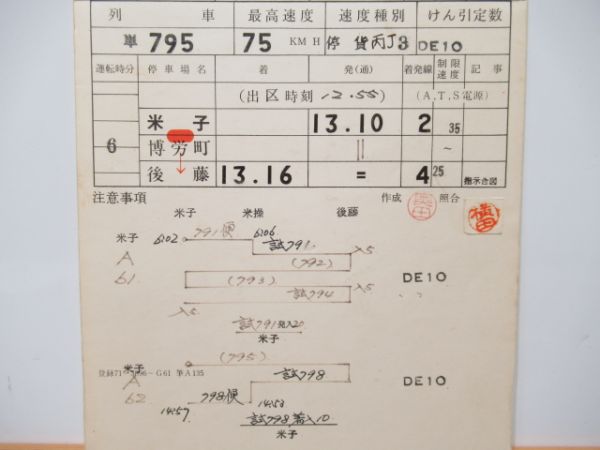 列車 最高速度 速度種別 けん引定数
単 795 75 KM H 停 貨丙J3 DE10
運転時分 停車場名 着 発(通) 着発線 制限速度 記事
(出区時刻 12.55) (A,T,S電源)
6 米子 13.10 2 35
博労町 || ~
後藤 13.16 = 4 25 指示合図
注意事項 作成 照合
米子 米操 後藤
米子 6:02 791便 6:06 試791 入5
A (792)
61 (793) DE10
試794 入5
入5
試791発入20
米子
(795)
米子
登録71 96~G61 筆A135
A 試798 DE10
62 798便
14:57 14:53
試798着入10
米子